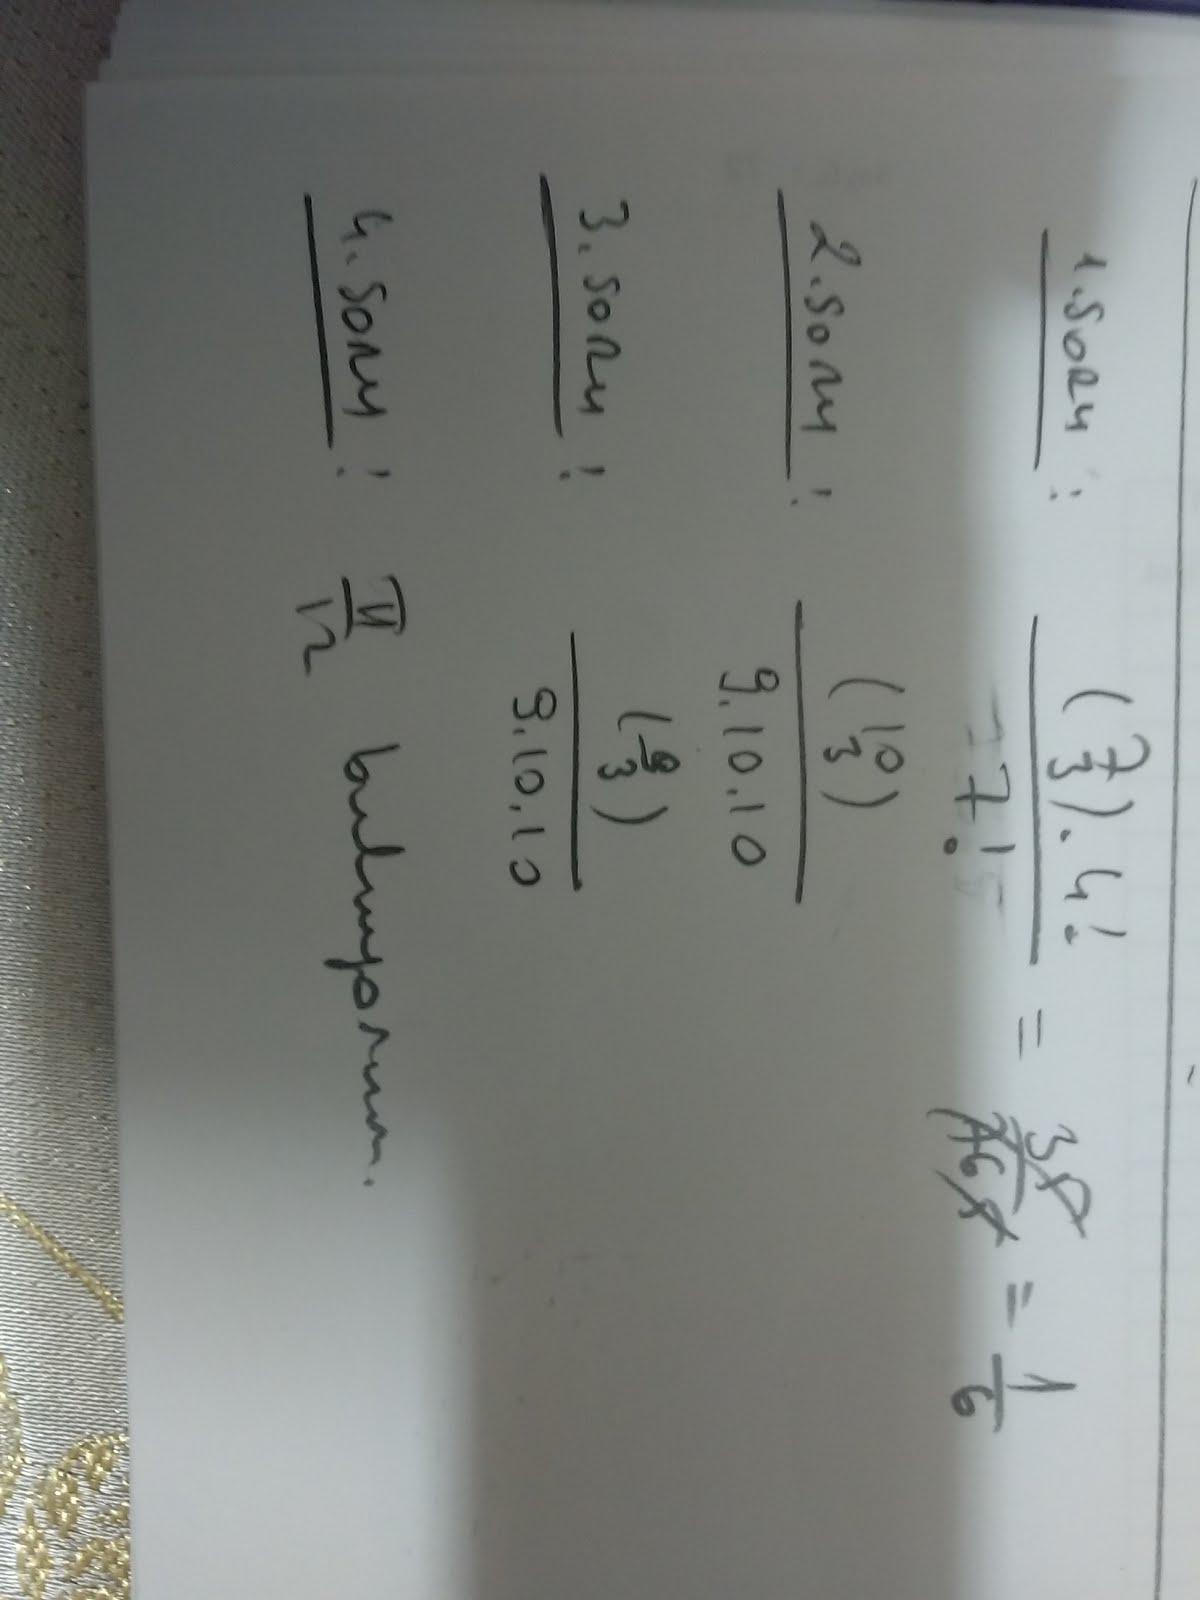 1. soru : (7 3) . 4! / 7! = 35 / 6 = 1/6
2. soru : (10 3) / 9.10.10
3. soru : (9 3) / 9.10.10
4. soru : π/12 buluyorum.